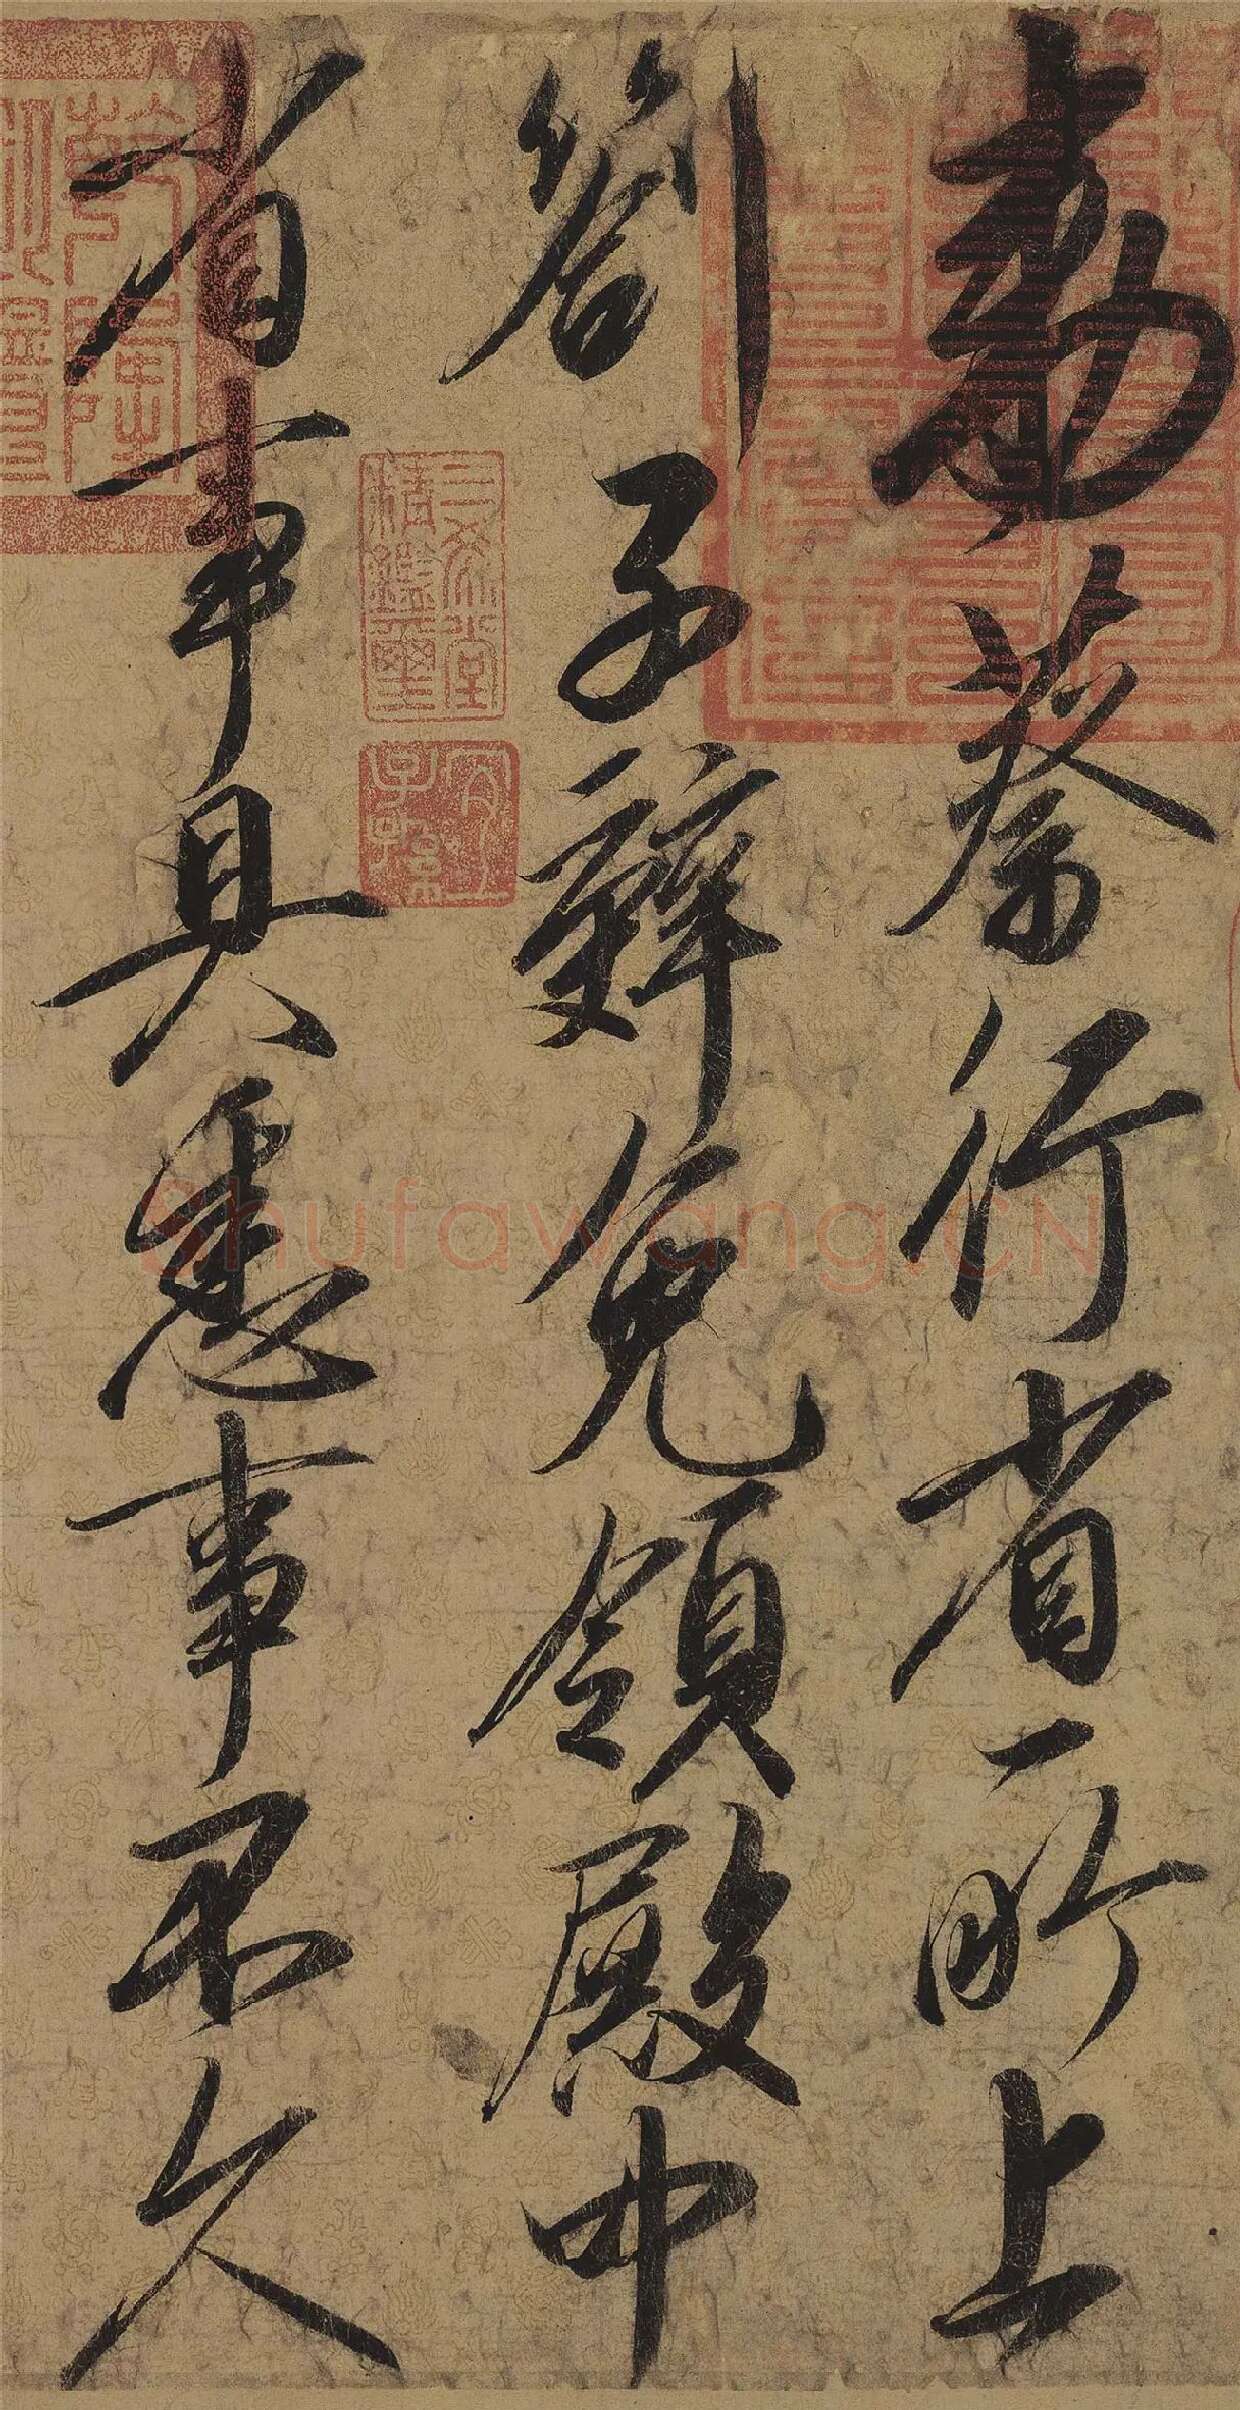 勅蔡行省所上
劄子辭免領殿中
省事具悉事不久
三希堂精鑑璽
宜子孫
Shufawang.CN